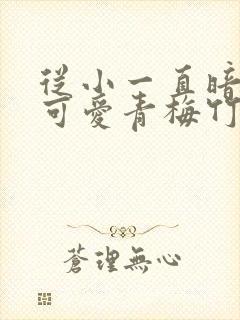 從小一直暗
可愛青梅竹
蒼理無心